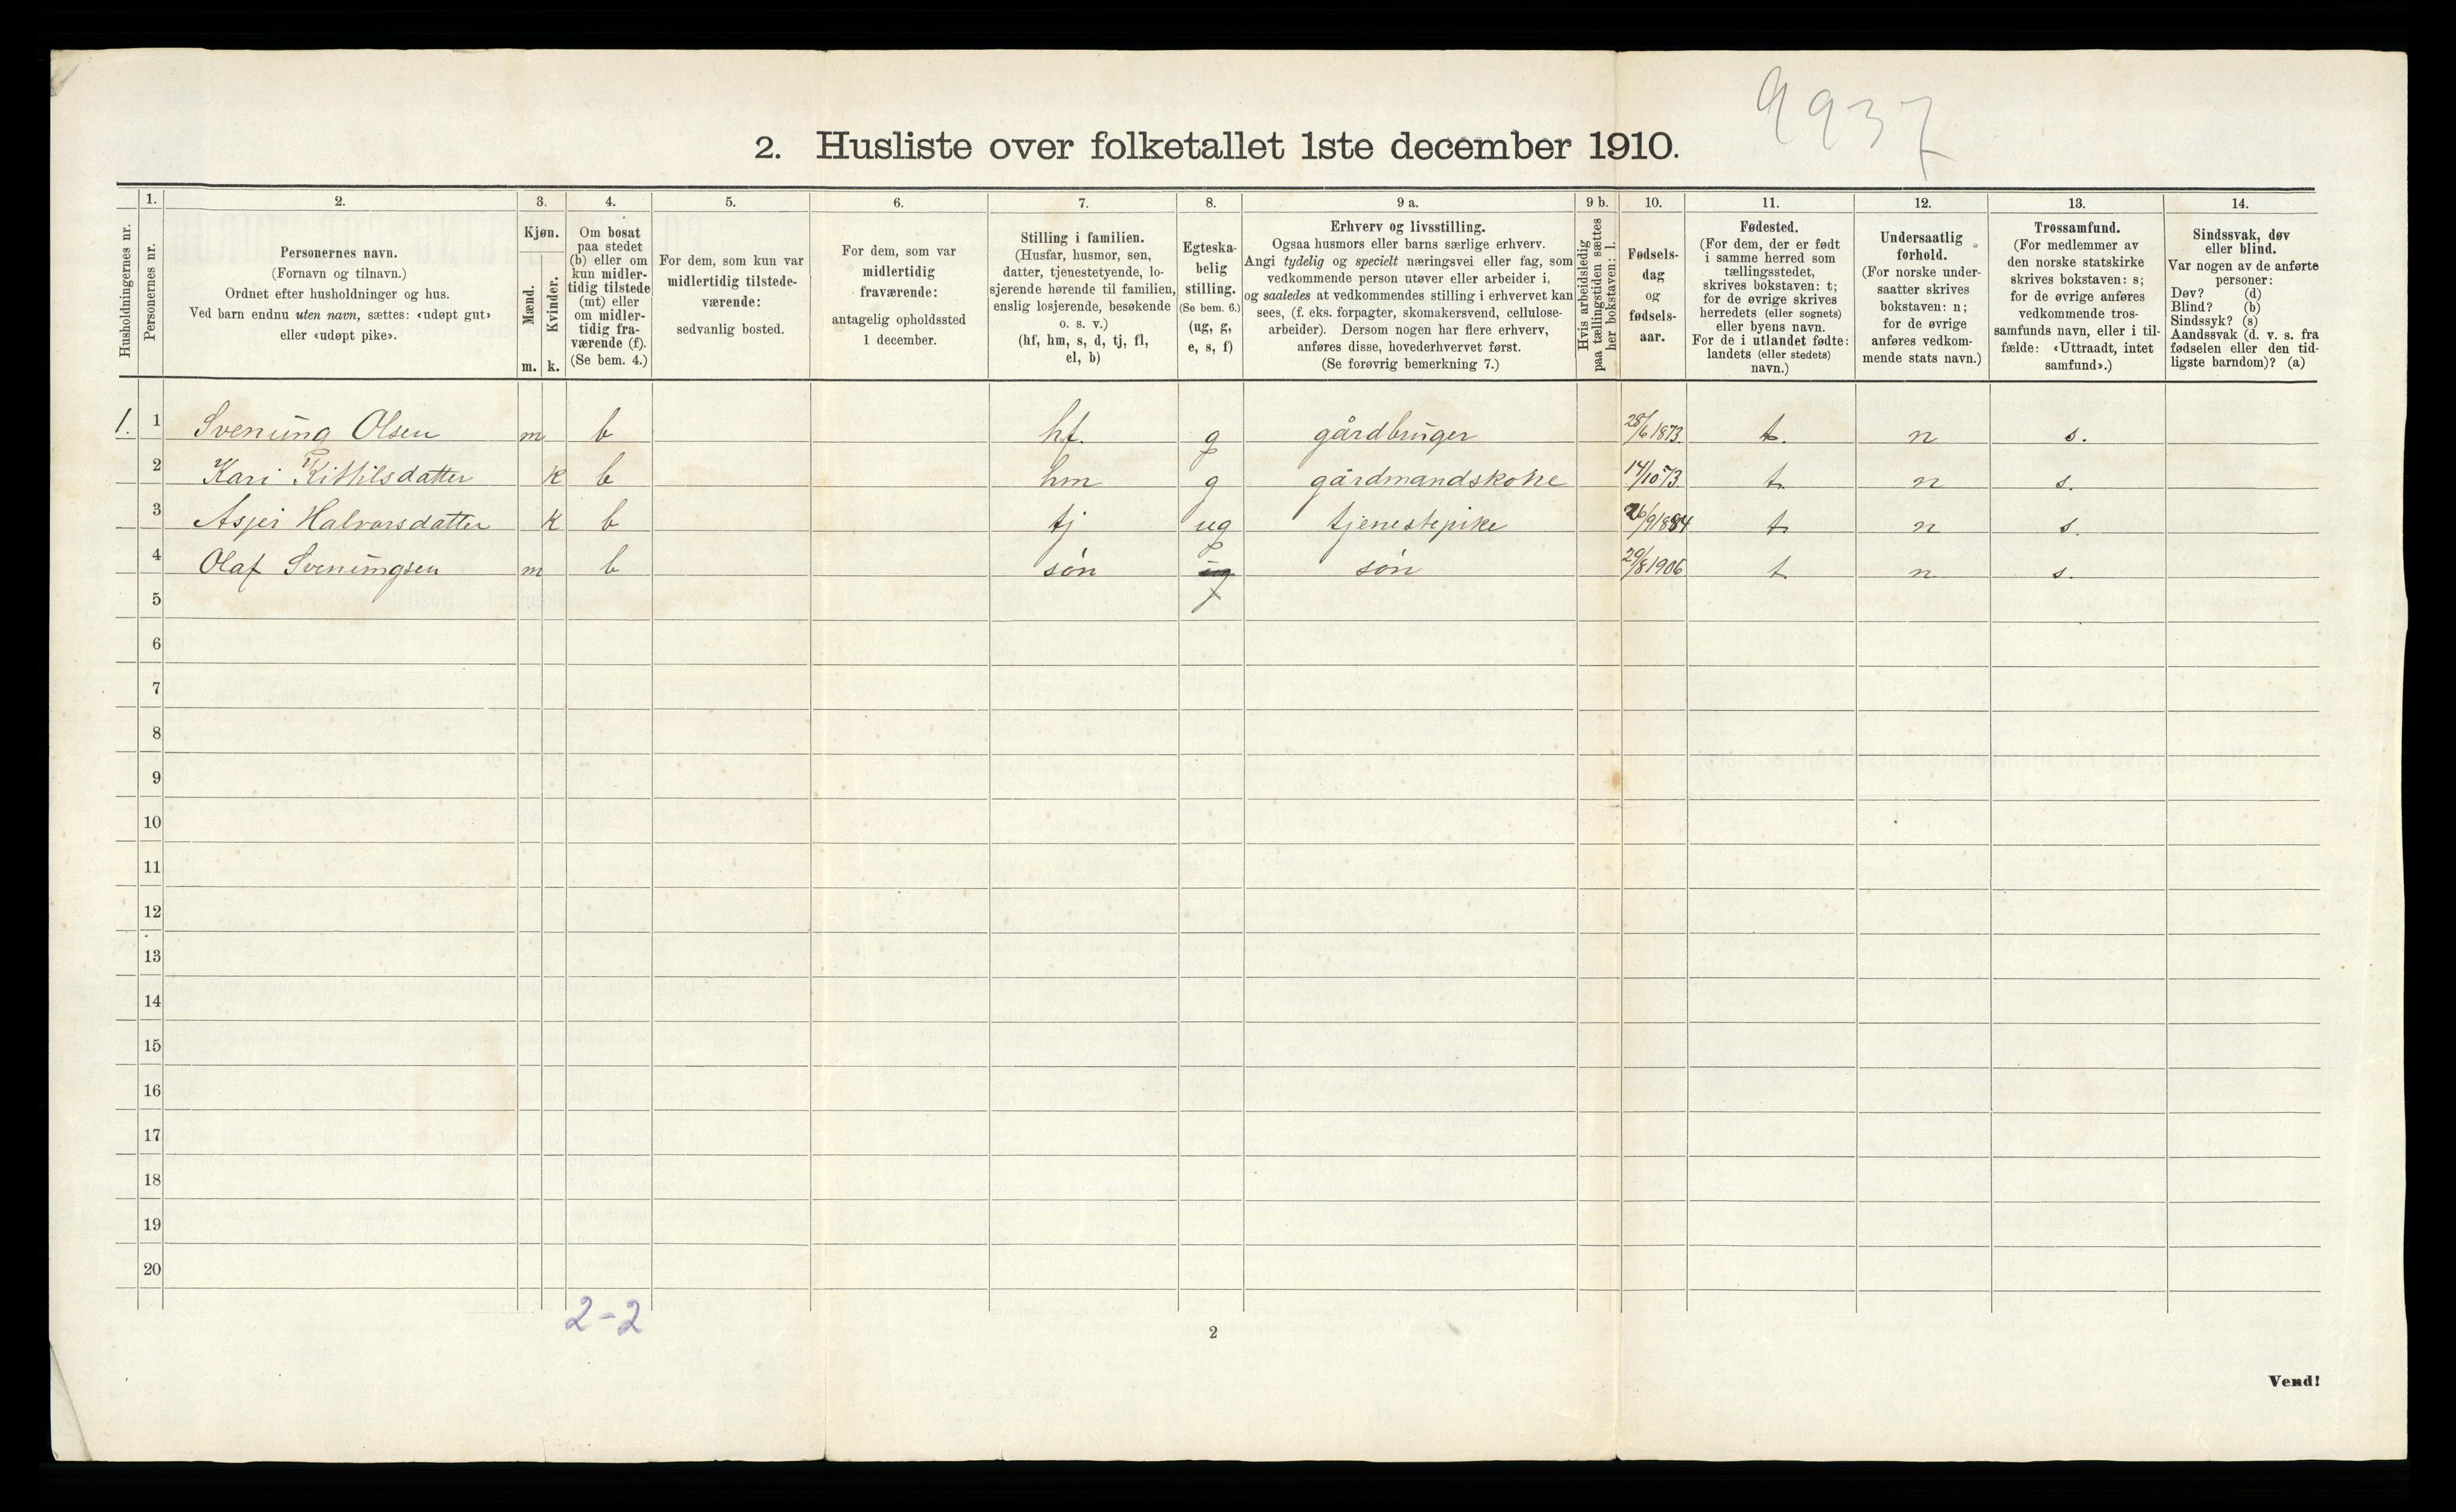 9937
2. Husliste over folketallet 1ste december 1910.
Husholdningernes nr.
1.
Personernes nr.
2.
Personernes navn.
(Fornavn og tilnavn.)
Ordnet efter husholdninger og hus.
Ved barn endnu uten navn, sættes: «udøpt gut»
eller «udøpt pike».
3.
Kjøn.
Mænd.
Kvinder.
m. k.
4.
Om bosat
paa stedet
(b) eller om
kun midler-
tidig tilstede
(mt) eller
om midler-
tidig fra-
værende (f).
(Se bem. 4.)
5.
For dem, som kun var
midlertidig tilstede-
værende:
sedvanlig bosted.
6.
For dem, som var
midlertidig
fraværende:
antagelig opholdssted
1 december.
7.
Stilling i familien.
(Husfar, husmor, søn,
datter, tjenestetyende, lo-
sjerende hørende til familien,
enslig losjerende, besøkende
o. s. v.)
(hf, hm, s, d, tj, fl,
el, b)
8.
Egteska-
belig
stilling.
(Se bem. 6.)
(ug, g,
e, s, f)
9 a.
Erhverv og livsstilling.
Ogsaa husmors eller barns særlige erhverv.
Angi tydelig og specielt næringsvei eller fag, som
vedkommende person utøver eller arbeider i,
og saaledes at vedkommendes stilling i erhvervet kan
sees, (f. eks. forpagter, skomakersvend, cellulose-
arbeider). Dersom nogen har flere erhverv,
anføres disse, hovederhvervet først.
(Se forøvrig bemerkning 7.)
9 b.
Hvis arbeidsledig
paa tællingstiden sættes
her bokstaven: l.
10.
Fødsels-
dag
og
fødsels-
aar.
11.
Fødested.
(For dem, der er født
i samme herred som
tællingsstedet,
skrives bokstaven: t;
for de øvrige skrives
herredets (eller sognets)
eller byens navn.
For de i utlandet fødte:
landets (eller stedets)
navn.)
12.
Undersaatlig
forhold.
(For norske under-
saatter skrives
bokstaven: n;
for de øvrige
anføres vedkom-
mende stats navn.)
13.
Trossamfund.
(For medlemmer av
den norske statskirke
skrives bokstaven: s;
for de øvrige anføres
vedkommende tros-
samfunds navn, eller i til-
fælde: «Uttraadt, intet
samfund».)
14.
Sindssvak, døv
eller blind.
Var nogen av de anførte
personer:
Døv? (d)
Blind? (b)
Sindssyk? (s)
Aandssvak (d. v. s. fra
fødselen eller den tid-
ligste barndom)? (a)
1. 1 Svenung Olsen m b hf. g gårdbruger 28/6 1873 t. n s.
2 Kari Kittilsdatter k b hm g gårdmandskone 14/10 73 t. n s.
3 Asjer Halvorsdatter k b tj ug tjenestepike 26/9 1884 t. n s.
4 Olaf Svenungsen m b søn ug søn 29/8 1906 t. n s.
5
6
7
8
9
10
11
12
13
14
15
16
17
18
19
20
2-2
2
Vend!